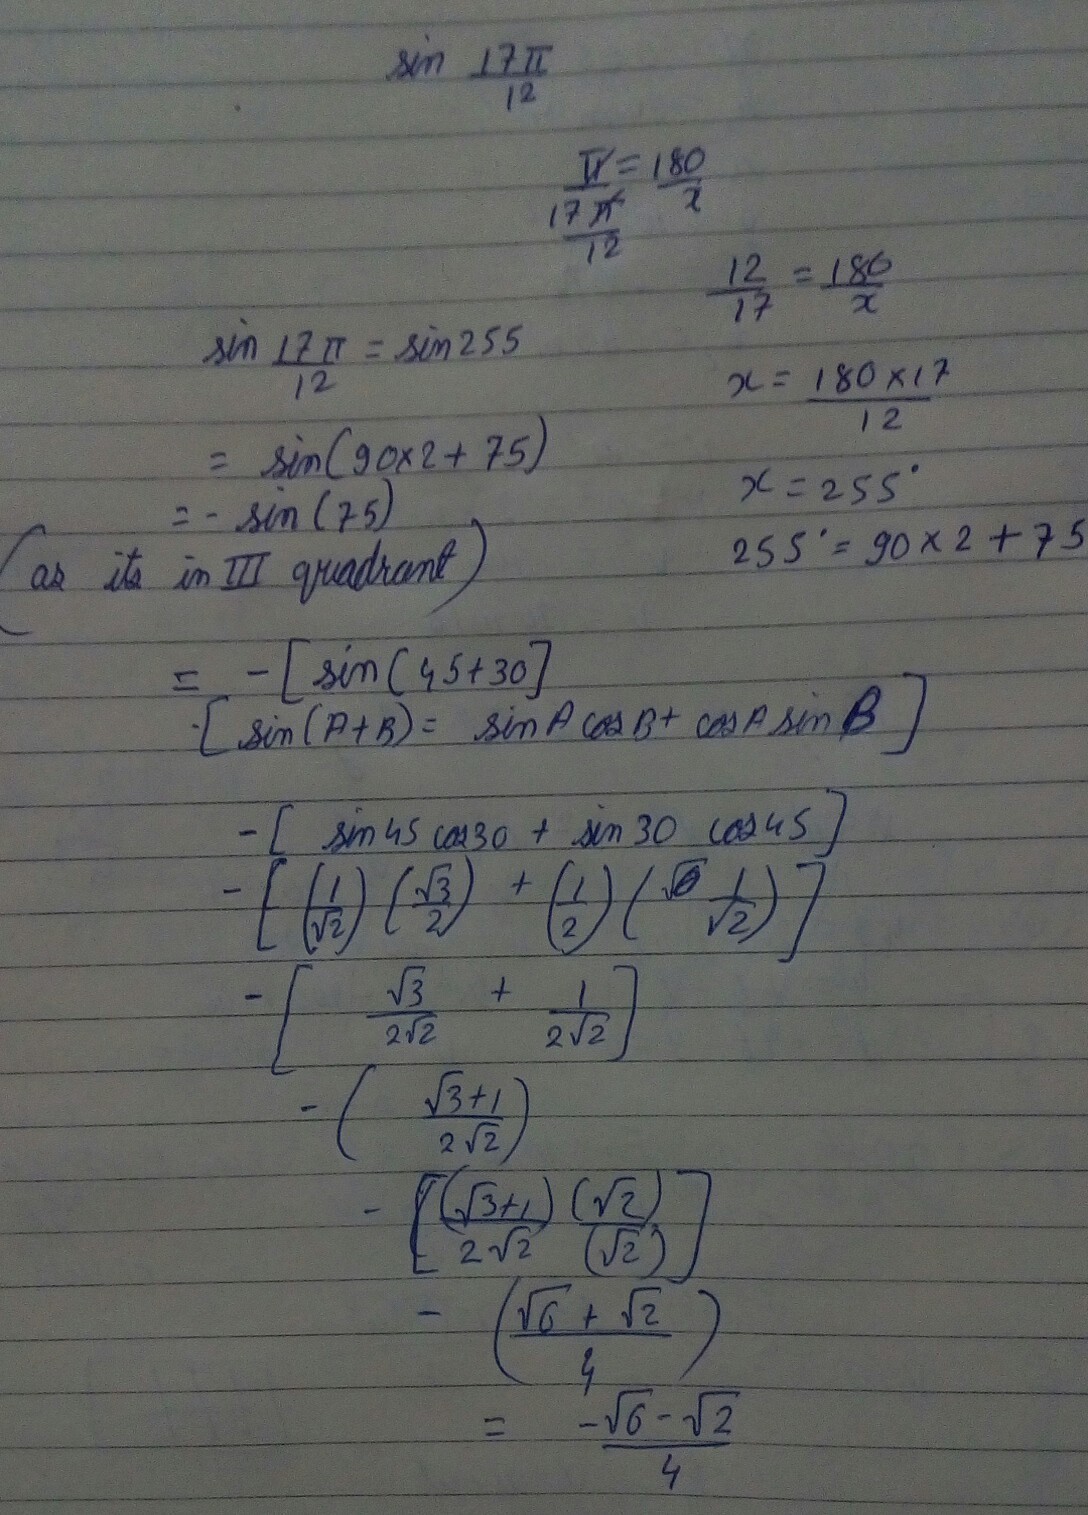 sin 17π/12
π/(17π/12) = 180/x
12/17 = 180/x
sin 17π/12 = sin255
x = 180×17/12
= sin(90×2+75)
x = 255°
= - sin(75)
255° = 90×2+75
(as its in III quadrant)
= -[sin(45+30]
[sin(A+B) = sinA cosB + cosA sinB]
-[sin45 cos30 + sin30 cos45]
-[(1/√2)(√3/2) + (1/2)(1/√2)]
-[√3/2√2 + 1/2√2]
-(√3+1/2√2)
-[(√3+1)/2√2 (√2)/(√2)]
-(√6+√2/4)
= -√6-√2/4